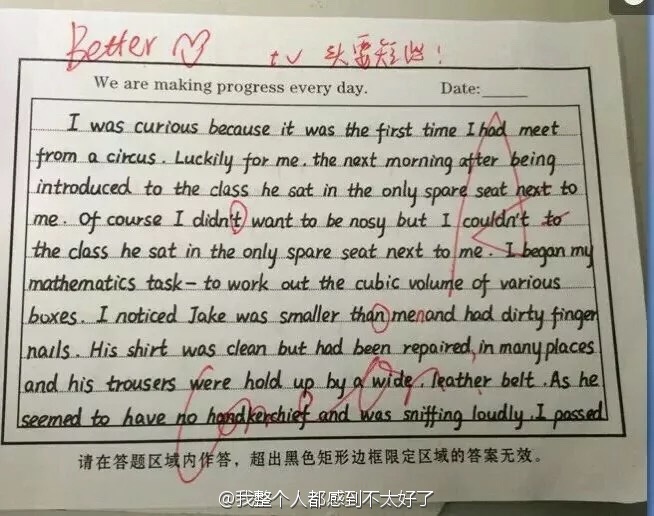 Better ♡ t v 头要短些!
We are making progress every day. Date:
I was curious because it was the first time I had meet
from a circus. Luckily for me. the next morning after being
introduced to the class he sat in the only spare seat next to
me. Of course I didn't want to be nosy but I couldn't to
the class he sat in the only spare seat next to me. I began my
mathematics task - to work out the cubic volume of various
boxes. I noticed Jake was smaller than menand had dirty finger
nails. His shirt was clean but had been repaired, in many places
and his trousers were hold up by a wide. leather belt. As he
seemed to have no handkerchief and was sniffing loudly. I passed
请在答题区域内作答，超出黑色矩形边框限定区域的答案无效。
@我整个人都感到不太好了